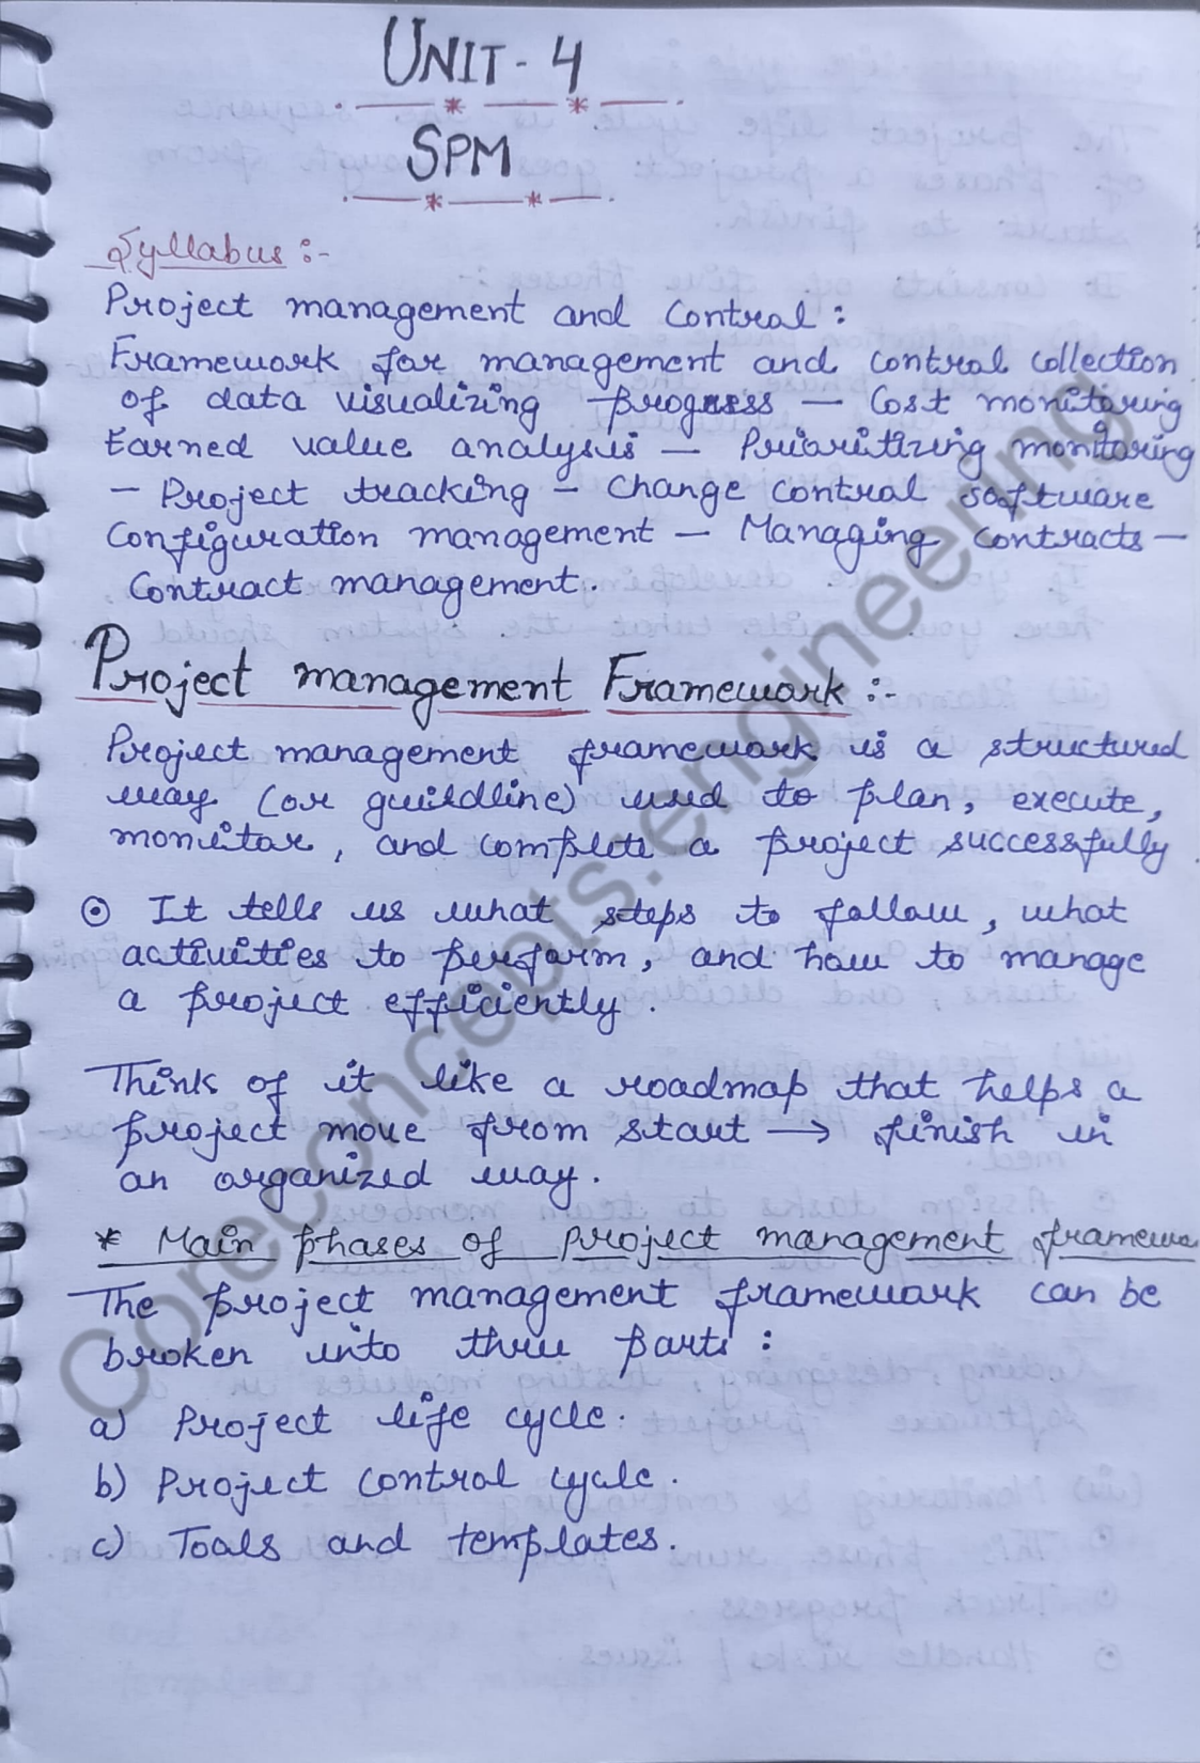 UNIT - 4
SPM
Syllabus :-
Project management and control :
Framework for management and control collection
of data visualizing progress — Cost monitoring
Earned value analysis — Prioritizing monitoring
— Project tracking — Change control software
Configuration management — Managing contracts —
Contract management.
Project management Framework :-
Project management framework is a structured
way (or guildline) used to plan, execute,
monitor, and complete a project successfully.
⊙ It tells us what steps to follow, what
activities to perform, and how to manage
a project efficiently.
Think of it like a roadmap that helps a
project move from start → finish in
an organized way.
* Main phases of project management framewo
The project management framework can be
broken into three parts :
a) Project life cycle.
b) Project control cycle.
c) Tools and templates.
Coreconcepts.engineering